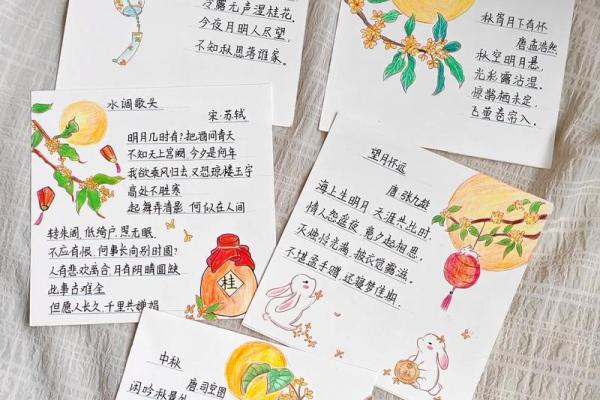 冷露无声湿桂花，
今夜月明人尽望，
不知秋思落谁家。
秋宵月下有怀
唐·孟浩然
秋空明月悬，
光彩露沾湿。
惊鹊栖未定，
飞萤卷帘入。
水调歌头
宋·苏轼
明月几时有？把酒问青天
不知天上宫阙 今夕是何年
我欲乘风归去 又恐琼楼玉宇
高处不胜寒
起舞弄清影，何似在人间
转朱阁，低绮户，照无眠
不应有恨，何事长向别时圆？
人有悲欢离合 月有阴晴圆缺
此事古难全
但愿人长久 千里共婵娟
桂
望月怀远
唐·张九龄
海上生明月 天涯共此时，
情人怨遥夜 竟夕起相思，
灭烛怜光满，披衣觉露滋。
不堪盈手赠 还寝梦佳期
中秋
唐·司空图
闲吟秋景外